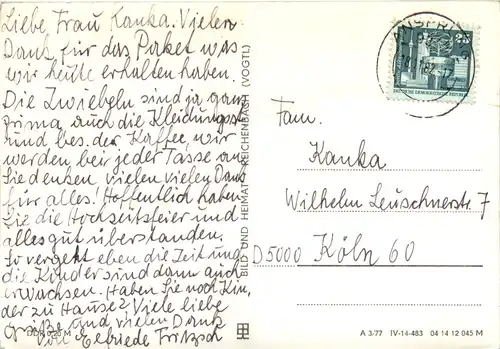 Liebe Frau Kanka. Vielen
Dank für das Paket was
wir heute erhalten haben.
Die Zwiebeln sind ja ganz
prima, auch die Kleidungsst.
und bes. der Kaffee, wir
werden bei jeder Tasse an
Sie denken, vielen vielen Dank
für alles. Hoffentlich haben
Sie die Hochzeitsfeier und
alles gut überstanden.
So vergeht eben die Zeit und
die Kinder sind dann auch
erwachsen. Haben Sie noch Kin,
der zu Hause? Viele liebe
Grüße und vielen Dank
von Elfriede Fritzsch
DDR 0,20 M
BILD UND HEIMAT REICHENBACH (VOGTL)
DEUTSCHE DEMOKRATISCHE REPUBLIK
Fam.
Kanka
Wilhelm Leuschnerstr. 7
D5000 Köln 60
A 3/77 IV-14-483 04 14 12 045 M